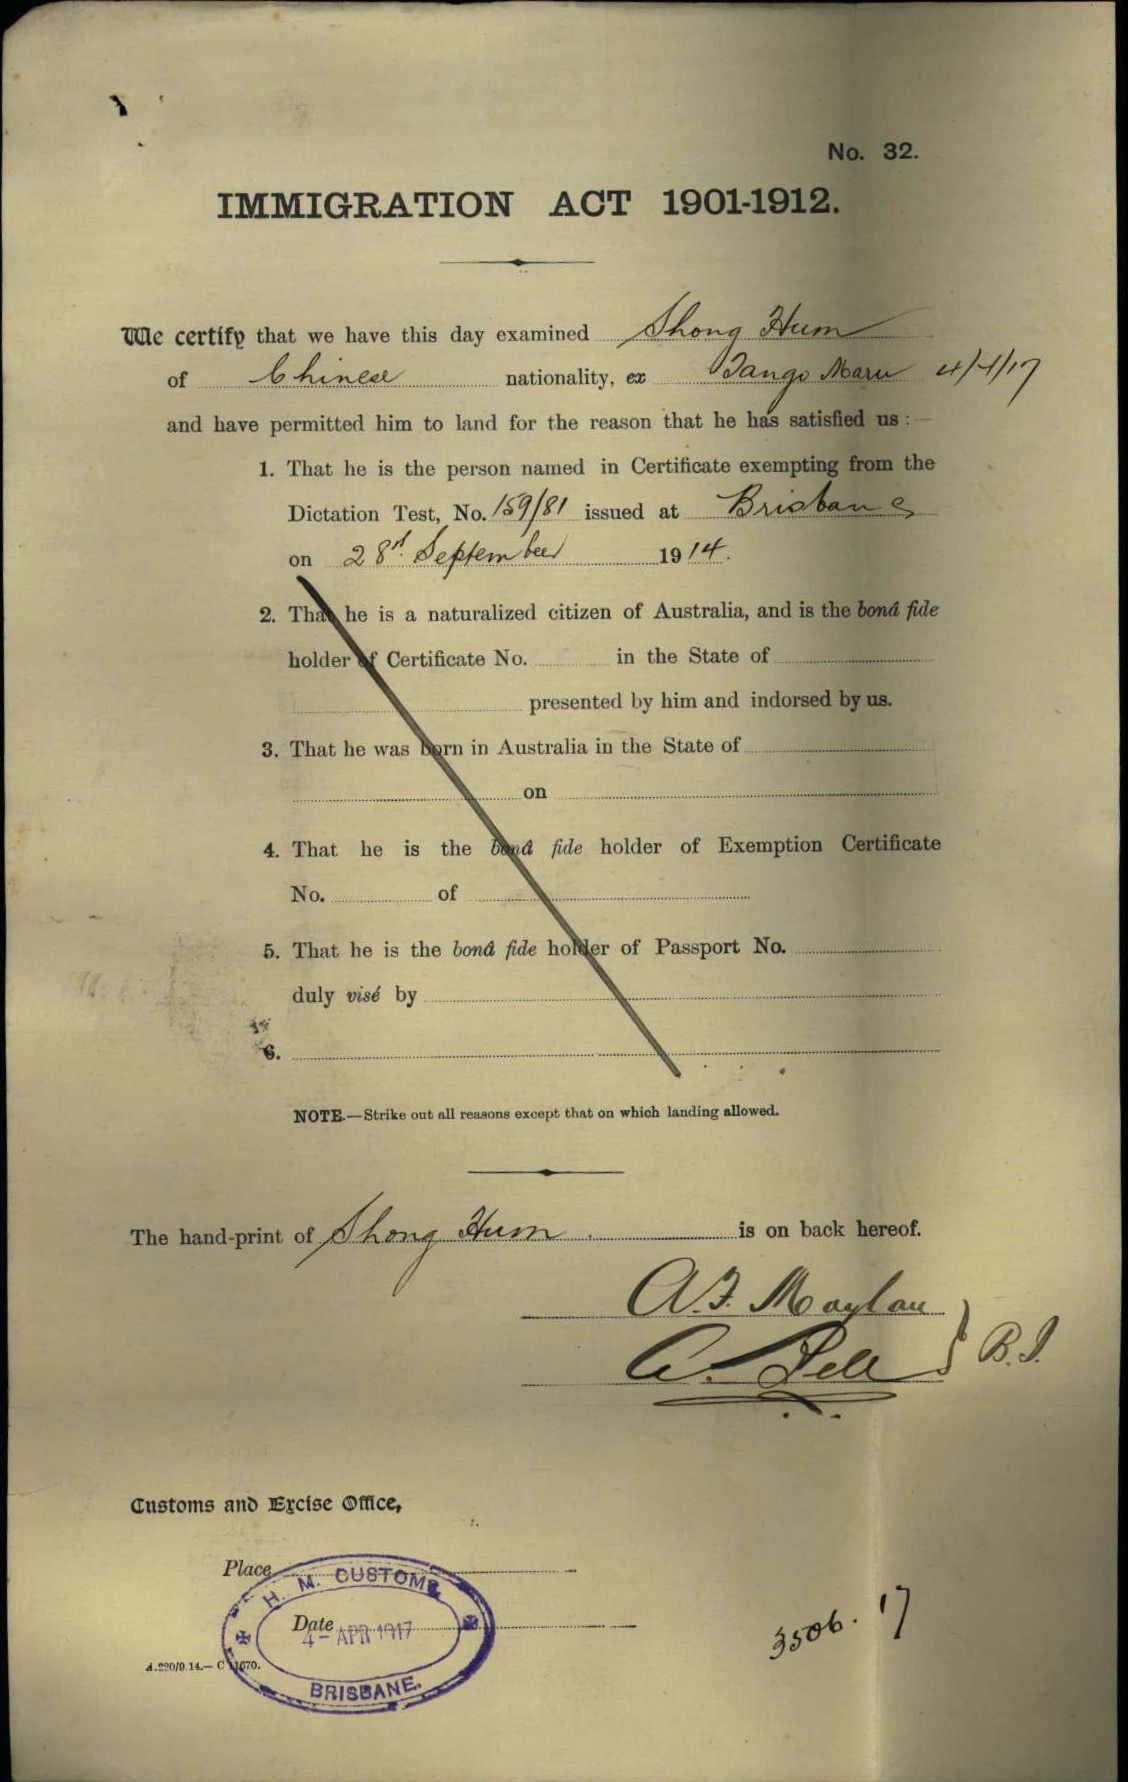 No. 32.
IMMIGRATION ACT 1901-1912.
We certify that we have this day examined Shong Hum
of Chinese nationality, ex Tango Maru 4/4/17
and have permitted him to land for the reason that he has satisfied us :—
1. That he is the person named in Certificate exempting from the
Dictation Test, No. 159/81 issued at Brisbane
on 28th September 1914.
2. That he is a naturalized citizen of Australia, and is the bonâ fide
holder of Certificate No. in the State of
presented by him and indorsed by us.
3. That he was born in Australia in the State of
on
4. That he is the bonâ fide holder of Exemption Certificate
No. of
5. That he is the bonâ fide holder of Passport No.
duly visé by
6.
NOTE.—Strike out all reasons except that on which landing allowed.
The hand-print of Shong Hum. is on back hereof.
A.F. Moylan
} B.I.
Customs and Excise Office,
Place
H. M. CUSTOMS
Date
4 - APR 1917
BRISBANE.
3506.17